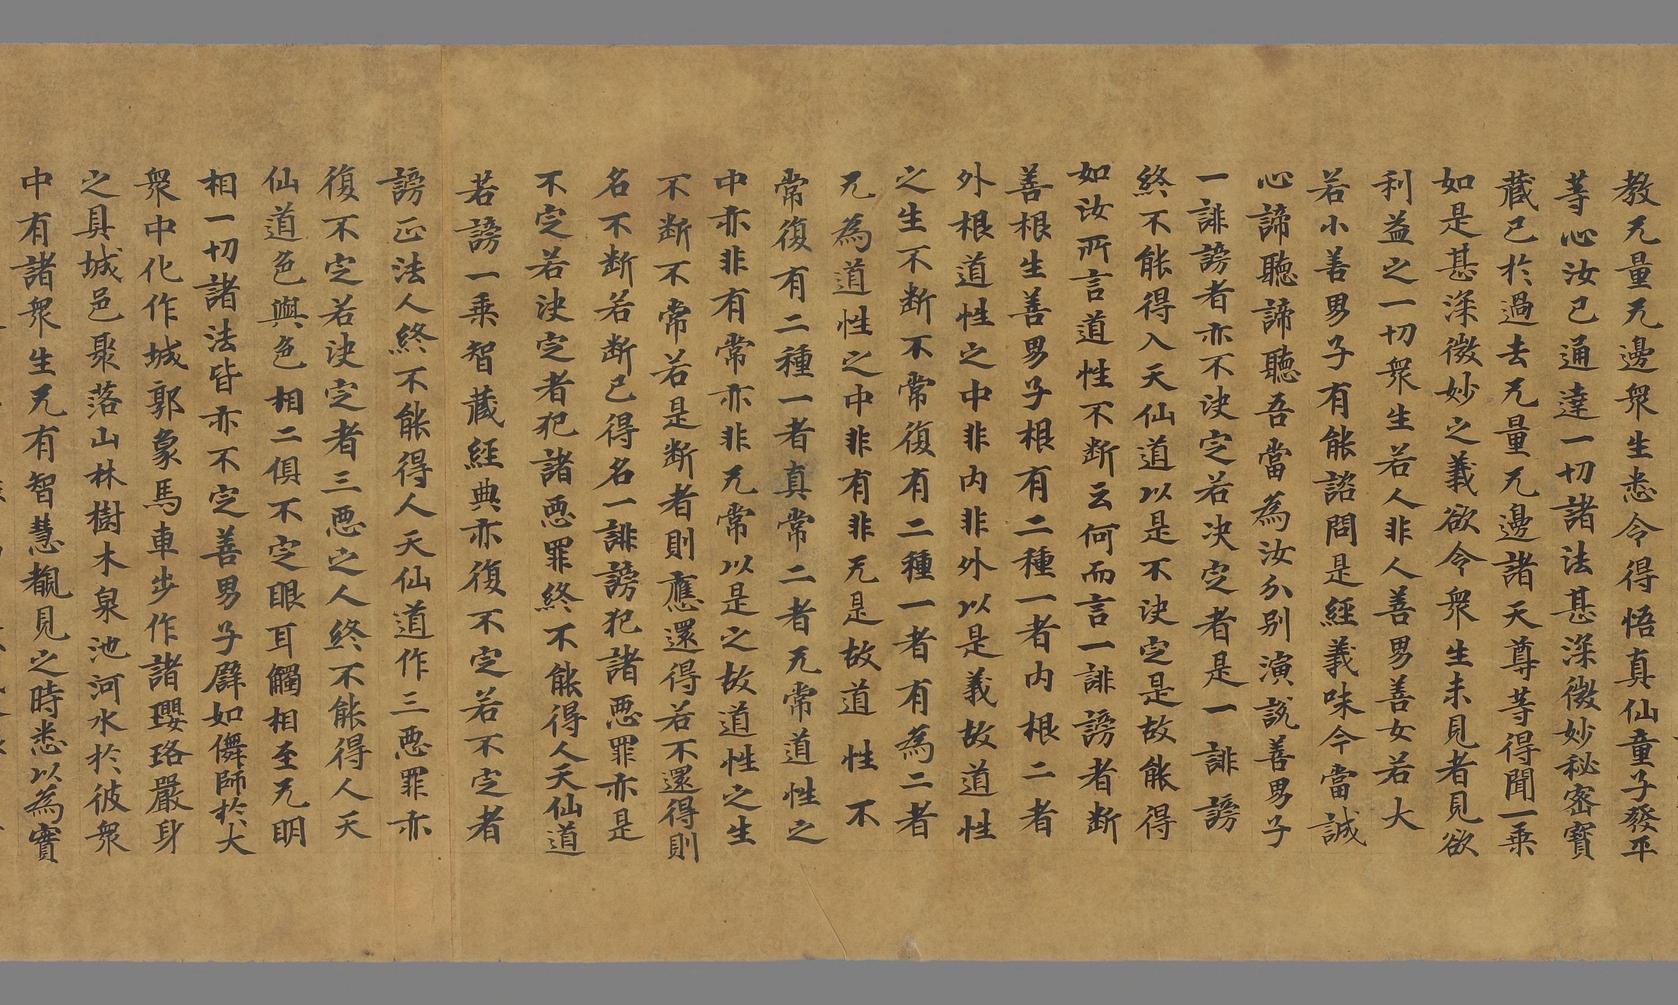 教无量无邊衆生悉令得悟真仙童子發平
等心汝已通達一切諸法甚深微妙秘密寳
藏已於過去无量无邊諸天尊等得聞一乗
如是甚深微妙之義欲令衆生未見者見欲
利益之一切衆生若人非人善男善女若大
若小善男子有能諮問是經義味今當誠
心諦聽諦聽吾當為汝分別演説善男子
一誹謗者亦不决定若决定者是一誹謗
終不能得入天仙道以是不决定是故能得
如汝所言道性不断云何而言一誹謗者断
善根生善男子根有二種一者内根二者
外根道性之中非内非外以是義故道性
之生不断不常復有二種一者有為二者
无為道性之中非有非无是故道性不
常復有二種一者真常二者无常道性之
中亦非有常亦非无常以是之故道性之生
不断不常若是断者則應還得若不還得則
名不断若断已得名一誹謗犯諸悪罪亦是
不定若决定者犯諸悪罪終不能得人天仙道
若謗一乗智藏經典亦復不定若不定者
謗正法人終不能得人天仙道作三悪罪亦
復不定若决定者三悪之人終不能得人天
仙道色與色相二俱不定眼耳觸相至无明
相一切諸法皆亦不定善男子譬如儛師於大
衆中化作城郭象馬車步作諸瓔珞嚴身
之具城邑聚落山林樹木泉池河水於彼衆
中有諸衆生无有智慧覩見之時悉以為寳